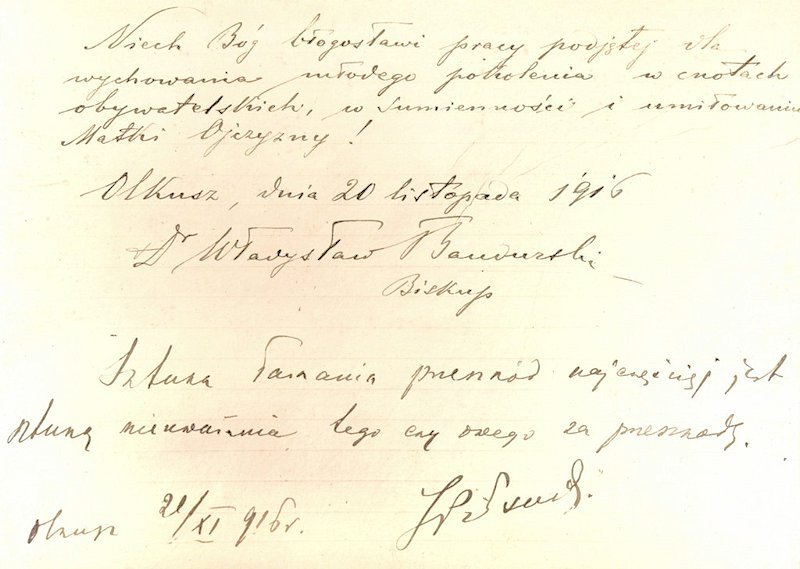 Niech Bóg błogosławi pracy podjętej dla
wychowania młodego pokolenia w cnotach
obywatelskich, w sumienności i umiłowaniu
Matki Ojczyzny!
Olkusz, dnia 20 listopada 1916
Dr Władysław Bandurski
Biskup
Sztuka łamania przeszkód najczęściej jest
sztuką nieuważania tego czy owego za przeszkodę.
Olkusz 20/XI 916 r.
J Piłsudski.